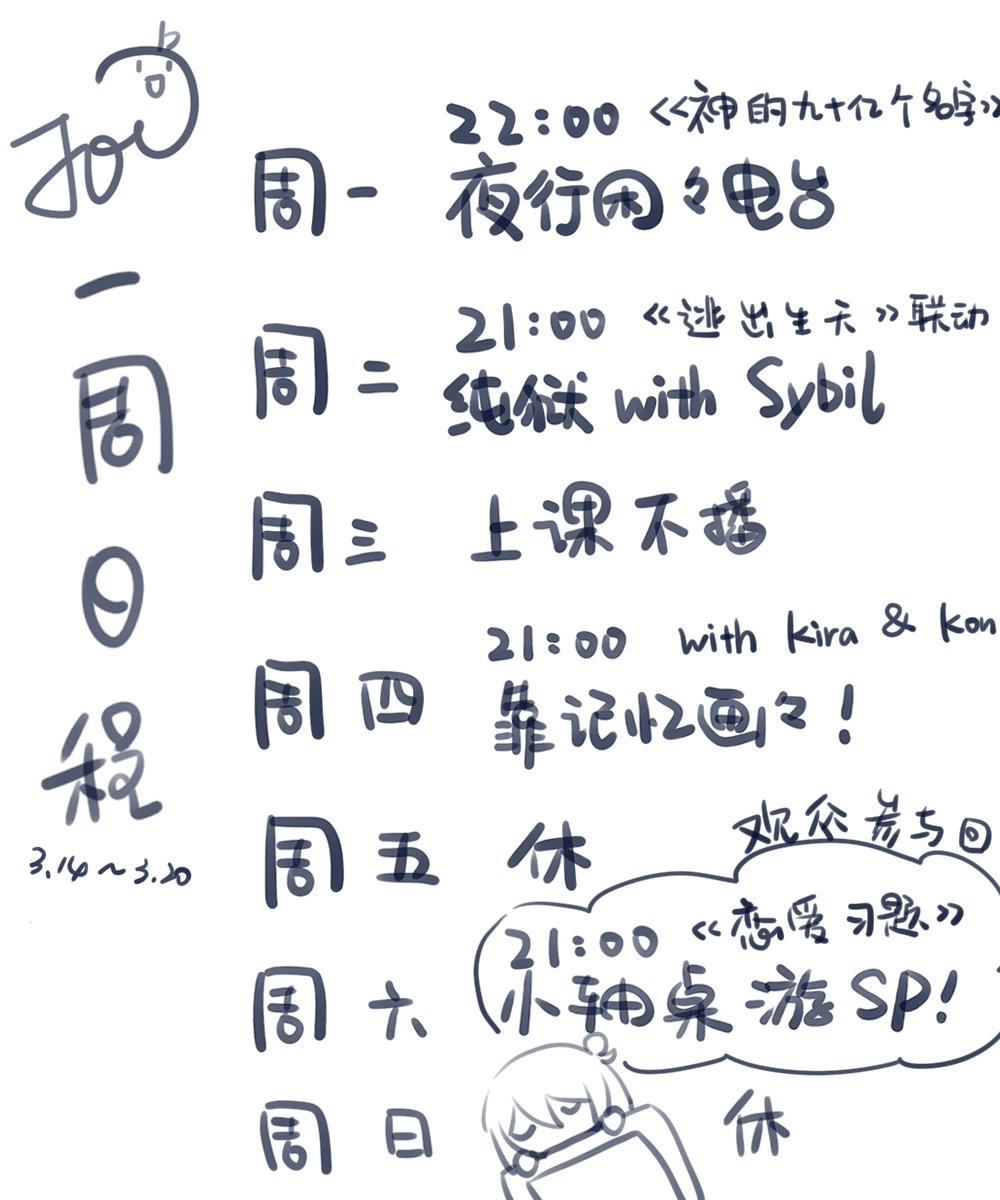 Joi
一周日程
3.14~3.20
周一
22:00 《神的九十亿个名字》
夜行闲々电台
周二
21:00 《逃出生天》联动
纯狱 with Sybil
周三 上课不播
周四
21:00 with kira & kon
靠记忆画々!
周五 休
观众参与回
周六
21:00 《恋爱习题》
小轴桌游SP!
周日 休